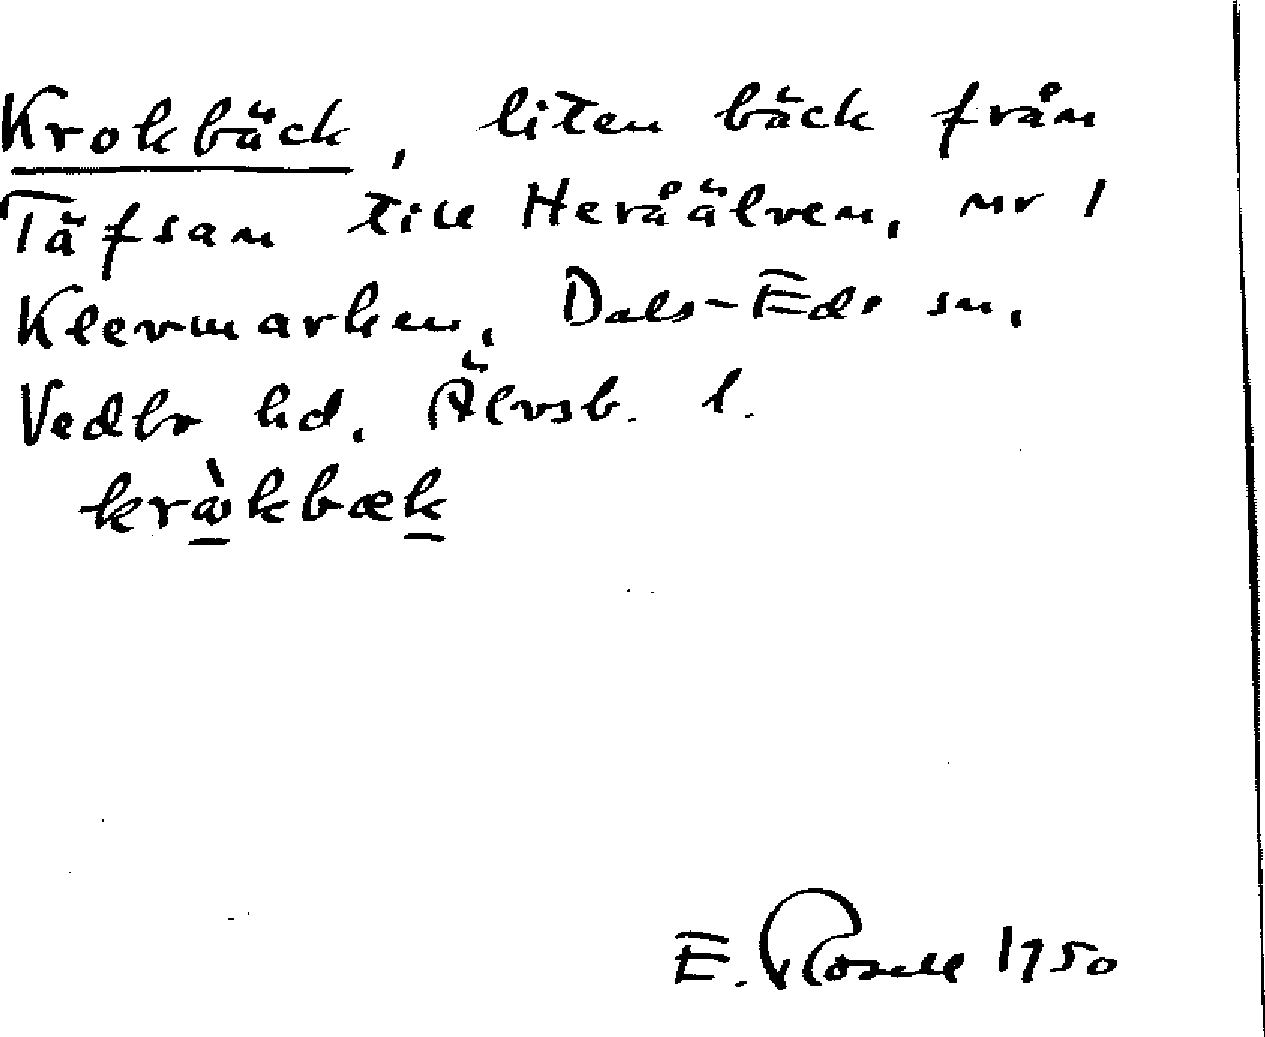 Krokbäck, liten bäck från
Täfsan till Heråälven, nr 1
Klevmarken, Dals-Eds sn,
Vedbo hd, Älvsb. l.
kråkbæk
E. Rosell 1950